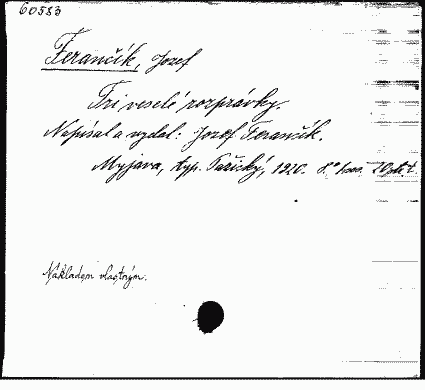 60583
Ferančík, Jozef
Tri veselé rozprávky.
Napísal a vydal: Jozef Ferančík.
Myjava, typ. Pažický, 1920. 8°
Nákladom vlastným.